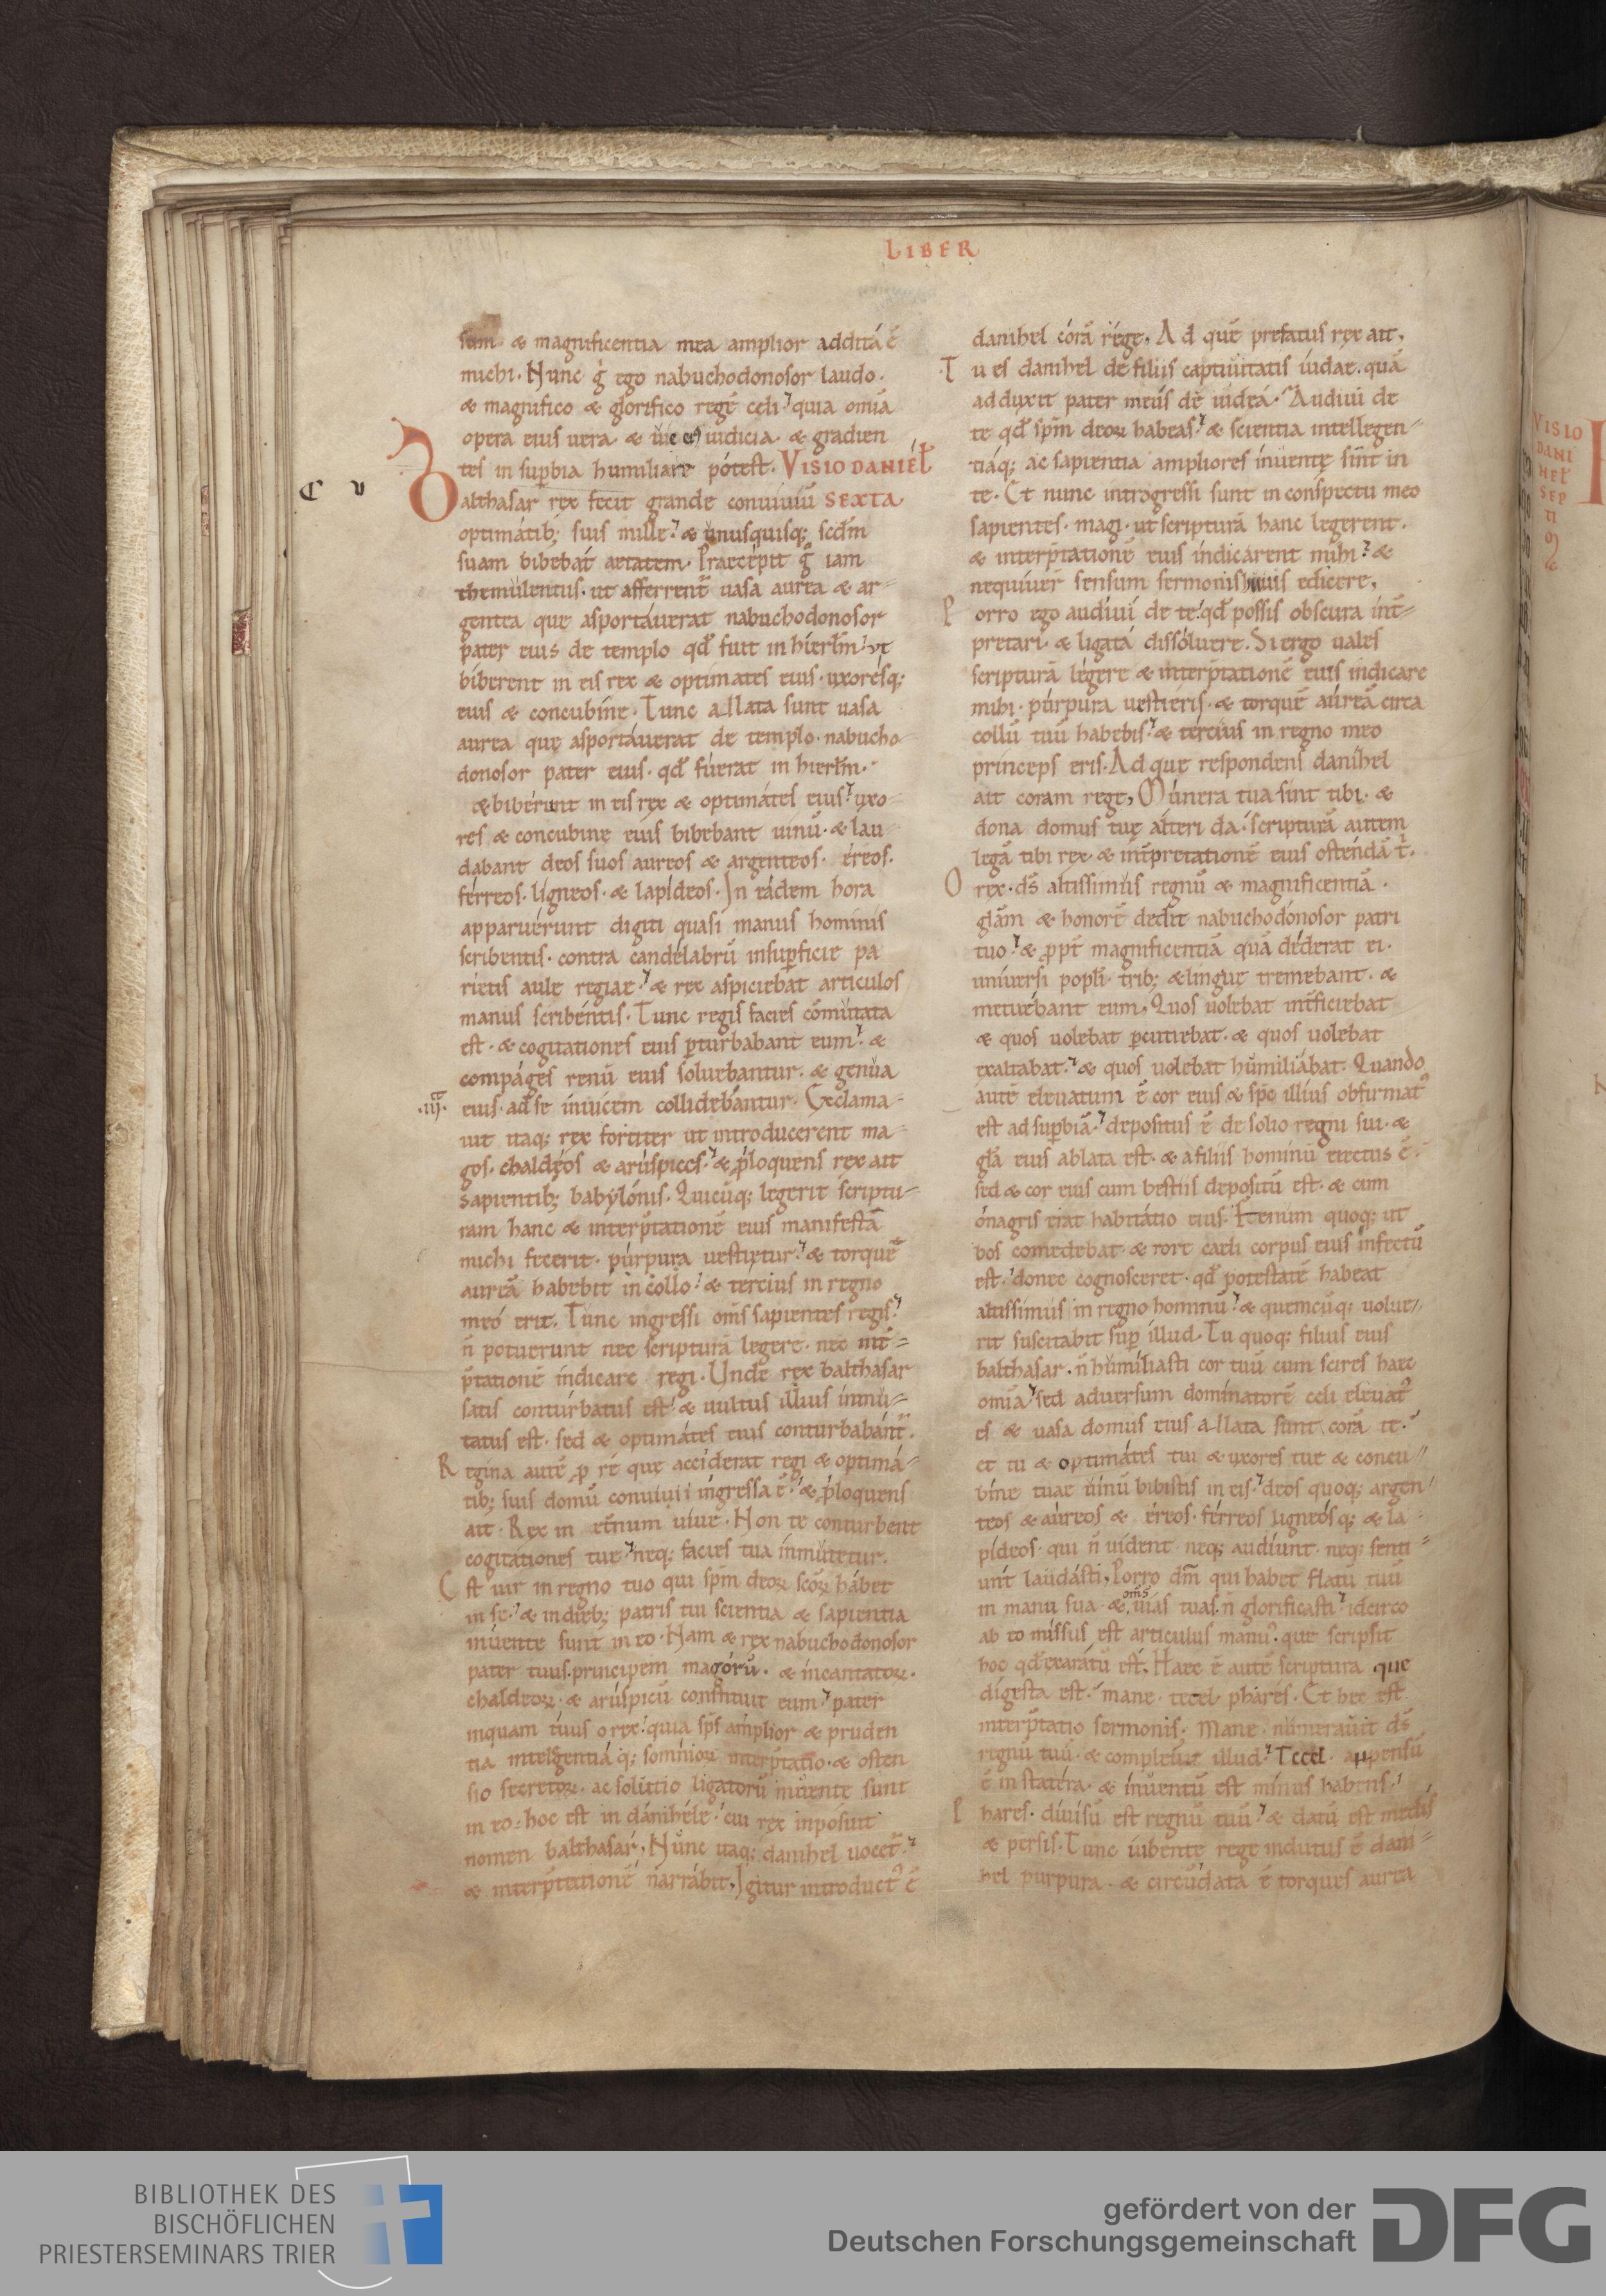 LIBER
sum· & magnificentia mea amplior addita ē
michi· Nunc g̊ ego nabuchodonosor laudo·
& magnifico & glorifico regē celi quia om̄ia
opera eius uera· & uie ei iudicia· & gradien
tes in supbia humiliare potest· VISIO DANIEL̄
C V
Balthasar rex fecit grande conuiuiū SEXTA
optimatib; suis mille & unusquisq; scdm̄
suam bibebat aetatem· Praecepit g̊ iam
themulentus· ut afferrent̄ uasa aurea & ar-
gentea que asportauerat nabuchodonosor
pater eius de templo qd̄ fuit in hierl̄m ut
biberent in eis rex & optimates eius· uxoresq;
eius & concubine· Tunc allata sunt uasa
aurea que asportauerat de templo· nabucho-
donosor pater eius· qd̄ fuerat in hierl̄m·
& biberunt in eis rex & optimates eius uxo-
res & concubinę eius bibebant uinū· & lau-
dabant deos suos aureos & argenteos· ereos·
ferreos· ligneos· & lapideos· In eadem hora
apparuerunt digiti quasi manus hominis
scribentis· contra candelabrū insupficie pa
rietis aule regiae & rex aspiciebat articulos
manus scribentis· Tunc regis facies cōmutata
est· & cogitationes eius pturbabant eum & 
compages renū eius soluebantur· & genua
eius· ad se inuicem collidebantur· Exclama-
uit itaq; rex fortiter ut introducerent ma-
gos· chaldęos & aruspices & ploquens rex ait
sapientib; babylonis· Quicūq; legerit scriptu-
ram hanc & interp̄tationē eius manifestā
michi fecerit· purpura uestietur & torquē
aureā habebit in collo & tercius in regno
meo erit· Tunc ingressi om̄s sapientes regis
n̄ potuerunt nec scripturā legere· nec int̄-
p̄tationē indicare regi· Unde rex balthasar
satis conturbatus est & uultus illius inmu-
tatus est· sed & optimates eius conturbabant̄·
Regina autē p re que acciderat regi & optima-
tib; suis domū conuiuii ingressa ē & ploquens
ait· Rex in et̄num uiue· Non te conturbent
cogitationes tue neq; facies tua inmutetur·
Est uir in regno tuo qui spm̄ deoꝝ scōꝝ habet
in se & in dieb; patris tui scientia & sapientia
inuente sunt in eo· Nam & rex nabuchodonosor
pater tuus· principem magorū· & incantatoꝝ·
chaldeoꝝ· & aruspicū constituit eum pater
inquam tuus o rex quia sps̄ amplior & pruden
tia intelgentiaq; somnioꝝ interp̄tatio· & osten
sio secretoꝝ· ac solutio ligatorū inuente sunt
in eo· hoc est in danihele cui rex inposuit
nomen balthasar· Nunc itaq; danihel uocet̄
& interp̄tationē narrabit· Igitur introduct' ē
danihel corā rege· Ad quē prefatus rex ait·
Tu es danihel de filiis captiuitatis iudae· quā
adduxit pater meus de iudea· Audiui de
te qd̄ spm̄ deoꝝ habeas & scientia intellegen-
tiaq; ac sapientia ampliores inuentę sint in
te· Et nunc introgressi sunt in conspectu meo
sapientes· magi· ut scripturā hanc legerent·
& interp̄tationē eius indicarent mihi &
nequiuer̄ sensum sermonis huius edicere·
Porro ego audiui de te qd̄ possis obscura int̄-
pretari· & ligata dissoluere· Si ergo uales
scripturā legere & interp̄tationē eius indicare
mihi· purpura uestieris· & torquē aureā circa
collū tuū habebis & tercius in regno meo
princeps eris· Ad que respondens danihel
ait coram rege· Munera tua sint tibi· &
dona domus tuę alteri da· scripturā autem
legā tibi rex· & int̄pretationē eius ostendā t̄·
O rex· ds̄ altissimus regnū & magnificentiā·
glām & honorē dedit nabuchodonosor patri
tuo & ppt̄ magnificentiā quā dederat ei·
uniuersi popl̄i· trib; & lingue tremebant· &
metuebant eum· Quos uolebat int̄ficiebat
& quos uolebat pcutiebat· & quos uolebat
exaltabat & quos uolebat humiliabat· Quando
autē eleuatum ē cor eius & spc̄ illius obfirmat'
est ad supbiā depositus ē de solio regni sui· &
glā eius ablata est· & a filiis hominū eiectus ē·
sed & cor eius cum bestiis depositū est· & cum
onagris erat habitatio eius· Fenum quoq; ut
bos comedebat· & rore caeli corpus eius infectū
est· donec cognosceret· qd̄ potestatē habeat
altissimus in regno hominū & quemcūq; uolue-
rit suscitabit sup illud· Tu quoq; filius eius
balthasar· n̄ humiliasti cor tuū cum scires haec
om̄ia sed aduersum dominatorē celi eleuat'
es & uasa domus eius allata sunt corā te·
et tu & optimates tui & uxores tue & concu-
bine tuae uinū bibistis in eis deos quoq; argen-
teos & aureos & ereos· ferreos ligneosq; & la-
pideos· qui n̄ uident· neq; audiunt· neq; senti-
unt laudasti· Porro dm̄ qui habet flatū tuū
in manu sua & om̄s uias tuas· n̄ glorificasti idcirco
ab eo missus est articulus manu'· que scripsit
hoc qd̄ exaratū est· Haec ē autē scriptura que
digesta est· mane· tecel· phares· Et hec est
interp̄tatio sermonis· Mane· numerauit ds̄
regnū tuū· & compleuit illud Tecel· appensū
ē in statera· & inuentū est minus habens·
Phares· diuisū est regnū tuū & datū est medis
& persis· Tunc iubente rege indutus ē dani-
hel purpura· & circūdata ē torques aurea
VISIO
DANI
HEL
SEP
TI
BIBLIOTHEK DES
BISCHÖFLICHEN
PRIESTERSEMINARS TRIER
gefördert von der
Deutschen Forschungsgemeinschaft
DFG